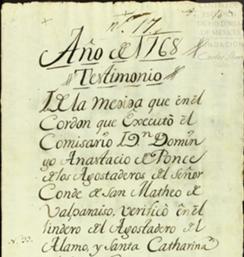 nº. 17
Año de 1768
Testimonio
De la mesina que en el
Cordon que Executò el
Comisario Dn. Domin
go Anastacio de Ponce
de los Agostaderos de el Señor
Conde de San Matheo de
Valparaiso, verificò en el
lindero de el Agostadero de el
Alamo, y Santa Catharina